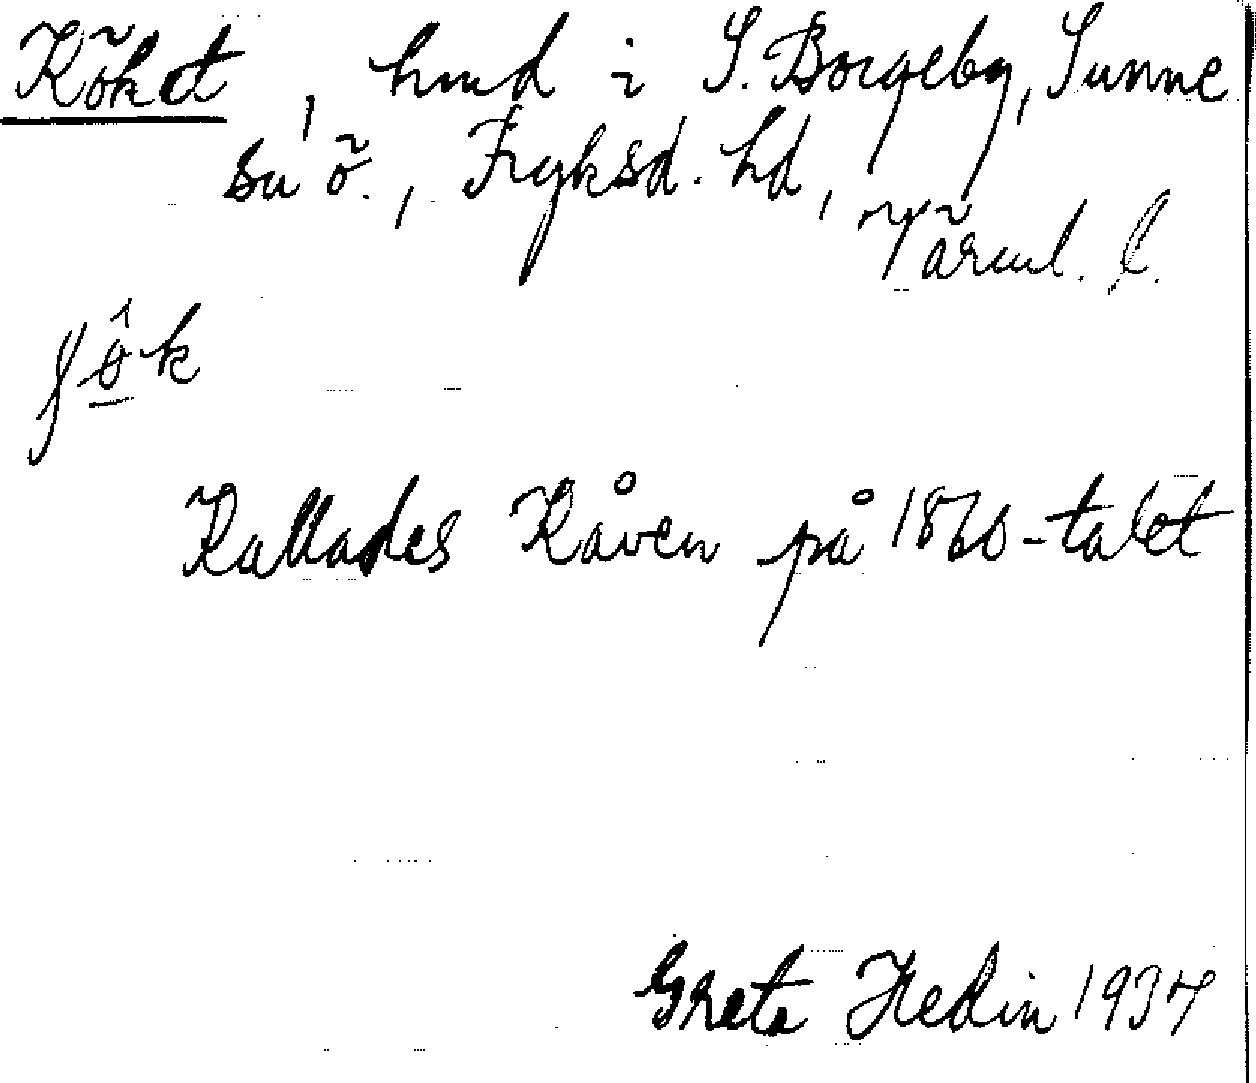 Köket, hmd i S. Borgeby, Sunne
sn ö., Fryksd. hd,
Värml. l.
Kallades Kåven på 1860-talet
Greta Hedin 1937